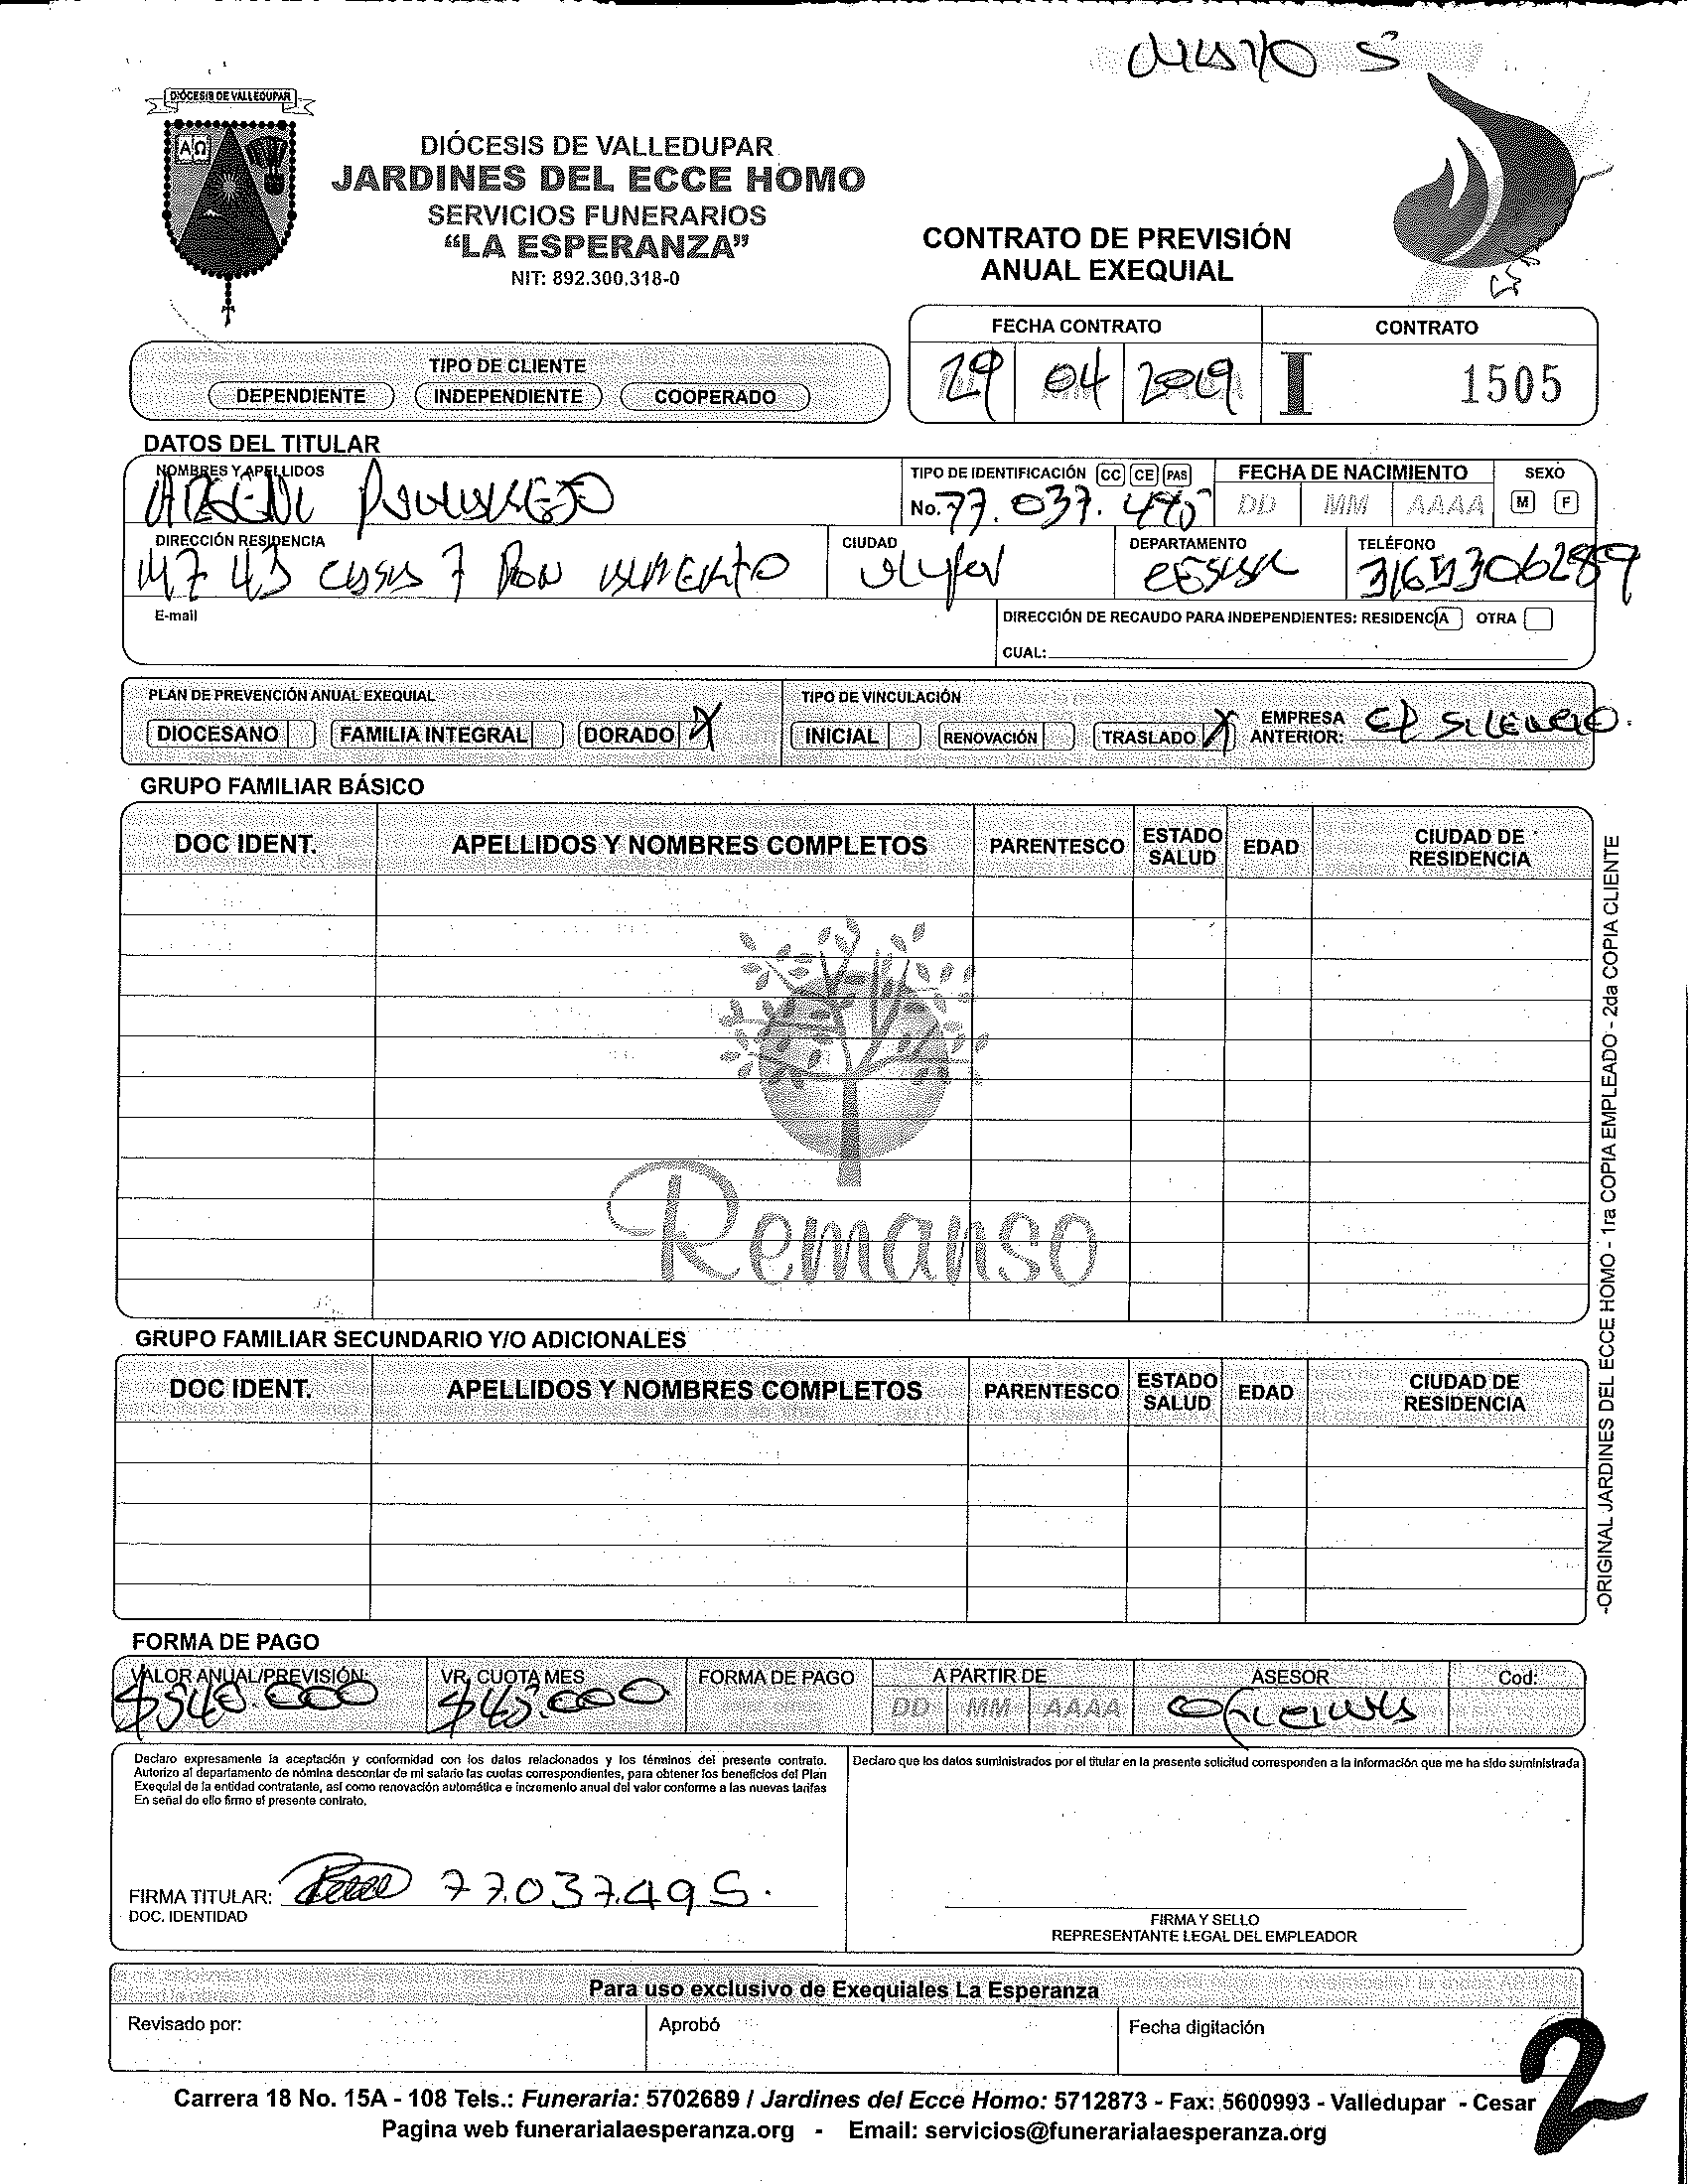 DIÓCESIS DE VALLEDUPAR
ΑΩ
DIÓCESIS DE VALLEDUPAR
JARDINES DEL ECCE HOMO
SERVICIOS FUNERARIOS
“LA ESPERANZA”
NIT: 892.300.318-0
CONTRATO DE PREVISIÓN
ANUAL EXEQUIAL
FECHA CONTRATO CONTRATO
29 04 2019 I 1505
TIPO DE CLIENTE
DEPENDIENTE INDEPENDIENTE COOPERADO
DATOS DEL TITULAR
NOMBRES Y APELLIDOS TIPO DE IDENTIFICACIÓN CC CE PAS FECHA DE NACIMIENTO SEXO
No. 77.037.495 DD MM AAAA M F
DIRECCIÓN RESIDENCIA CIUDAD DEPARTAMENTO TELÉFONO
7
E-mail DIRECCIÓN DE RECAUDO PARA INDEPENDIENTES: RESIDENCIA OTRA
CUAL:
PLAN DE PREVENCIÓN ANUAL EXEQUIAL TIPO DE VINCULACIÓN
DIOCESANO FAMILIA INTEGRAL DORADO X INICIAL RENOVACIÓN TRASLADO X EMPRESA ANTERIOR:
GRUPO FAMILIAR BÁSICO
DOC IDENT. APELLIDOS Y NOMBRES COMPLETOS PARENTESCO ESTADO SALUD EDAD CIUDAD DE RESIDENCIA
Remanso
GRUPO FAMILIAR SECUNDARIO Y/O ADICIONALES
DOC IDENT. APELLIDOS Y NOMBRES COMPLETOS PARENTESCO ESTADO SALUD EDAD CIUDAD DE RESIDENCIA
-ORIGINAL JARDINES DEL ECCE HOMO - 1ra COPIA EMPLEADO - 2da COPIA CLIENTE
FORMA DE PAGO
VALOR ANUAL/PREVISIÓN: VR. CUOTA MES FORMA DE PAGO A PARTIR DE ASESOR Cod:
$540.000 $45.000 DD MM AAAA
Declaro expresamente la aceptación y conformidad con los datos relacionados y los términos del presente contrato.
Autorizo al departamento de nómina descontar de mi salario las cuotas correspondientes, para obtener los beneficios del Plan
Exequial de la entidad contratante, así como renovación automática e incremento anual del valor conforme a las nuevas tarifas
En señal de ello firmo el presente contrato.
Declaro que los datos suministrados por el titular en la presente solicitud corresponden a la información que me ha sido suministrada
FIRMA TITULAR: 77.037.495.
DOC. IDENTIDAD
FIRMA Y SELLO
REPRESENTANTE LEGAL DEL EMPLEADOR
Para uso exclusivo de Exequiales La Esperanza
Revisado por: Aprobó Fecha digitación
2
Carrera 18 No. 15A - 108 Tels.: Funeraria: 5702689 / Jardines del Ecce Homo: 5712873 - Fax: 5600993 - Valledupar - Cesar
Pagina web funerarialaesperanza.org - Email: servicios@funerarialaesperanza.org